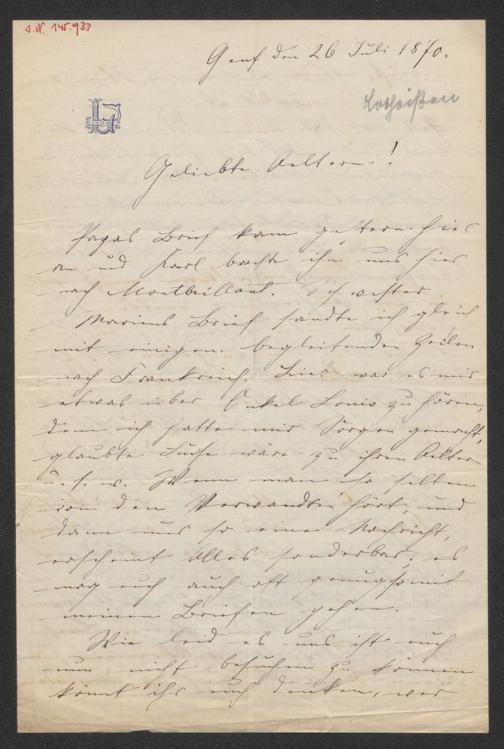 J.N. 145.933
Genf den 26 Juli 1870.
Geliebte Aeltern!
Papas Brief kam gestern hier
an und Karl brachte ihn uns hier
nach Montbrillant. Schwester
Mariens Brief sandte ich gleich
mit einigen begleitenden Zeilen
nach Frankreich. Lieb war es mir
etwas über Onkel Louis zu hören,
denn ich hatte mir Sorgen gemacht,
glaubte wäre zu ihren Aeltern
u. s. w. Wenn man so selten
von den Verwandten hört, und
dann nur so eine Nachricht,
erscheint alles sonderbar, es
mag euch auch oft genug so mit
meinen Briefen gehen.
Wie leid es uns ist euch
nun nicht besuchen zu können
könnt ihr euch denken, wer